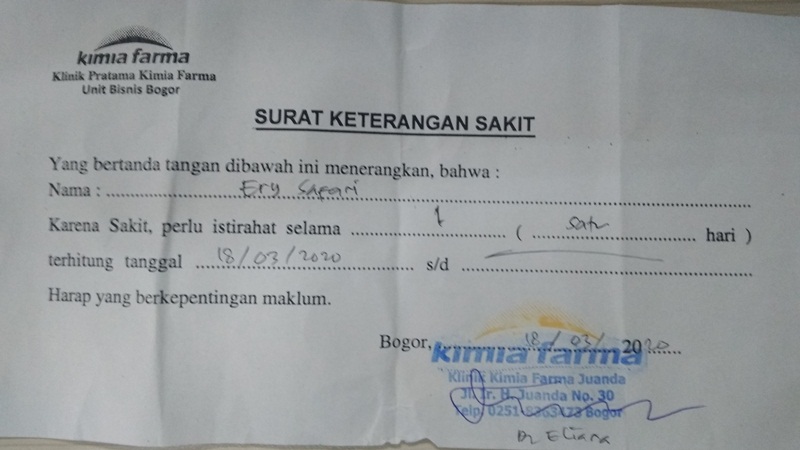 kimia farma
Klinik Pratama Kimia Farma
Unit Bisnis Bogor
SURAT KETERANGAN SAKIT
Yang bertanda tangan dibawah ini menerangkan, bahwa :
Nama : Ery Safari
Karena Sakit, perlu istirahat selama 1 ( satu hari )
terhitung tanggal 18/03/2020 s/d
Harap yang berkepentingan maklum.
Bogor, 18/03/ 2020
kimia farma
Klinik Kimia Farma Juanda
Jl. Ir. H. Juanda No. 30
Telp. 0251 Bogor
Dr Eliana